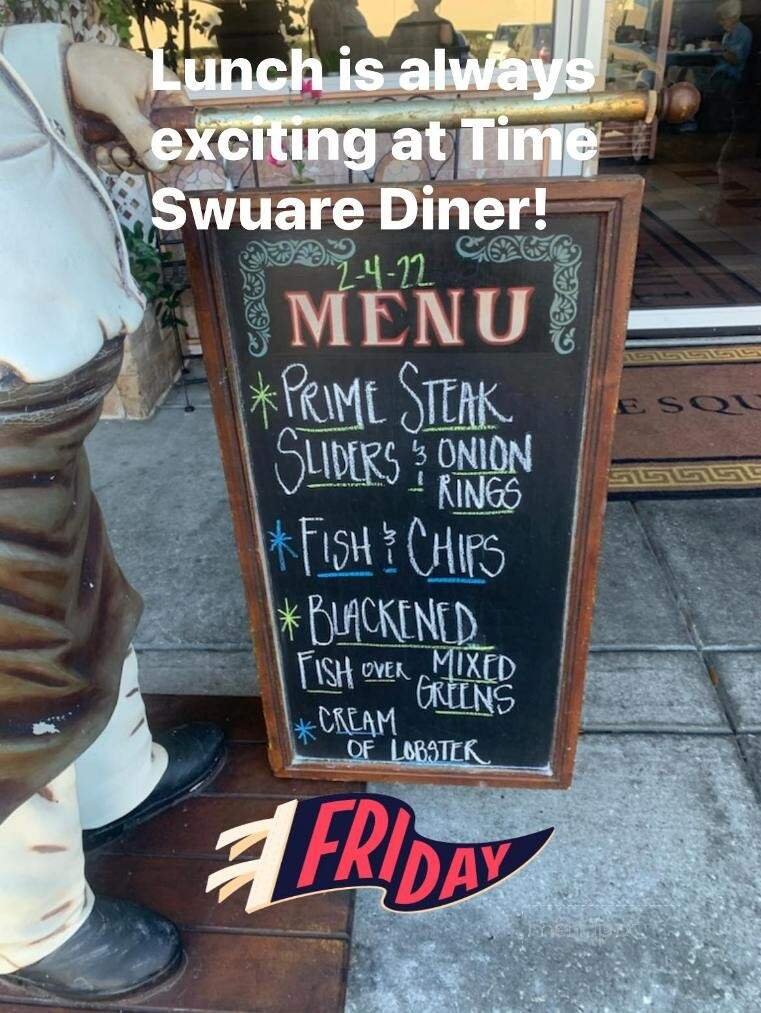 Lunch is always
exciting at Time
Swuare Diner!
2-4-22
MENU
* PRIME STEAK
SLIDERS & ONION
RINGS
* FISH & CHIPS
* BLACKENED
FISH OVER MIXED
GREENS
* CREAM
OF LOBSTER
E SQU
FRIDAY